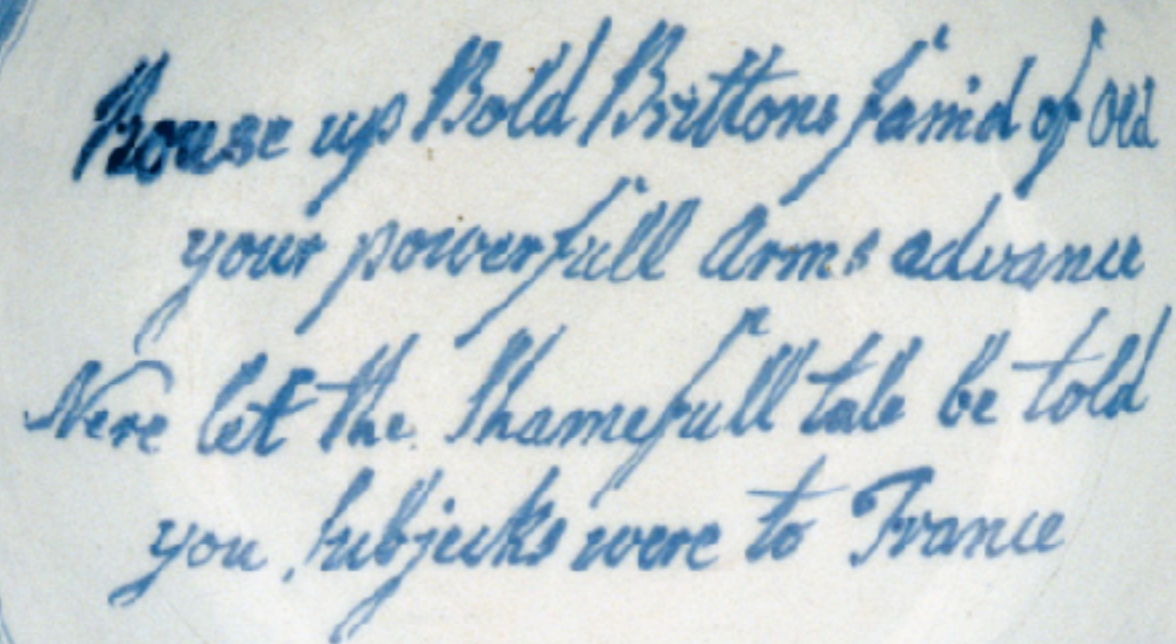 Rouse up Bold Brittons fam'd of Old
your powerfull Arms advance
Nere let the Shamefull tale be told
you Subjects were to France